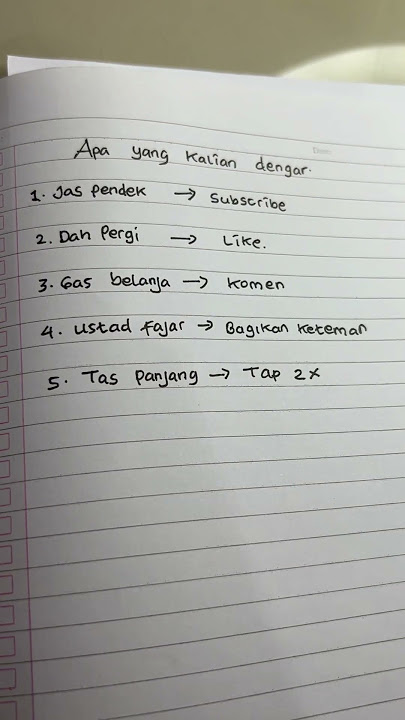 Apa yang Kalian dengar.
1. Jas Pendek → Subscribe
2. Dah Pergi → Like.
3. Gas belanja → Komen
4. Ustad Fajar → Bagikan Keteman
5. Tas Panjang → Tap 2x